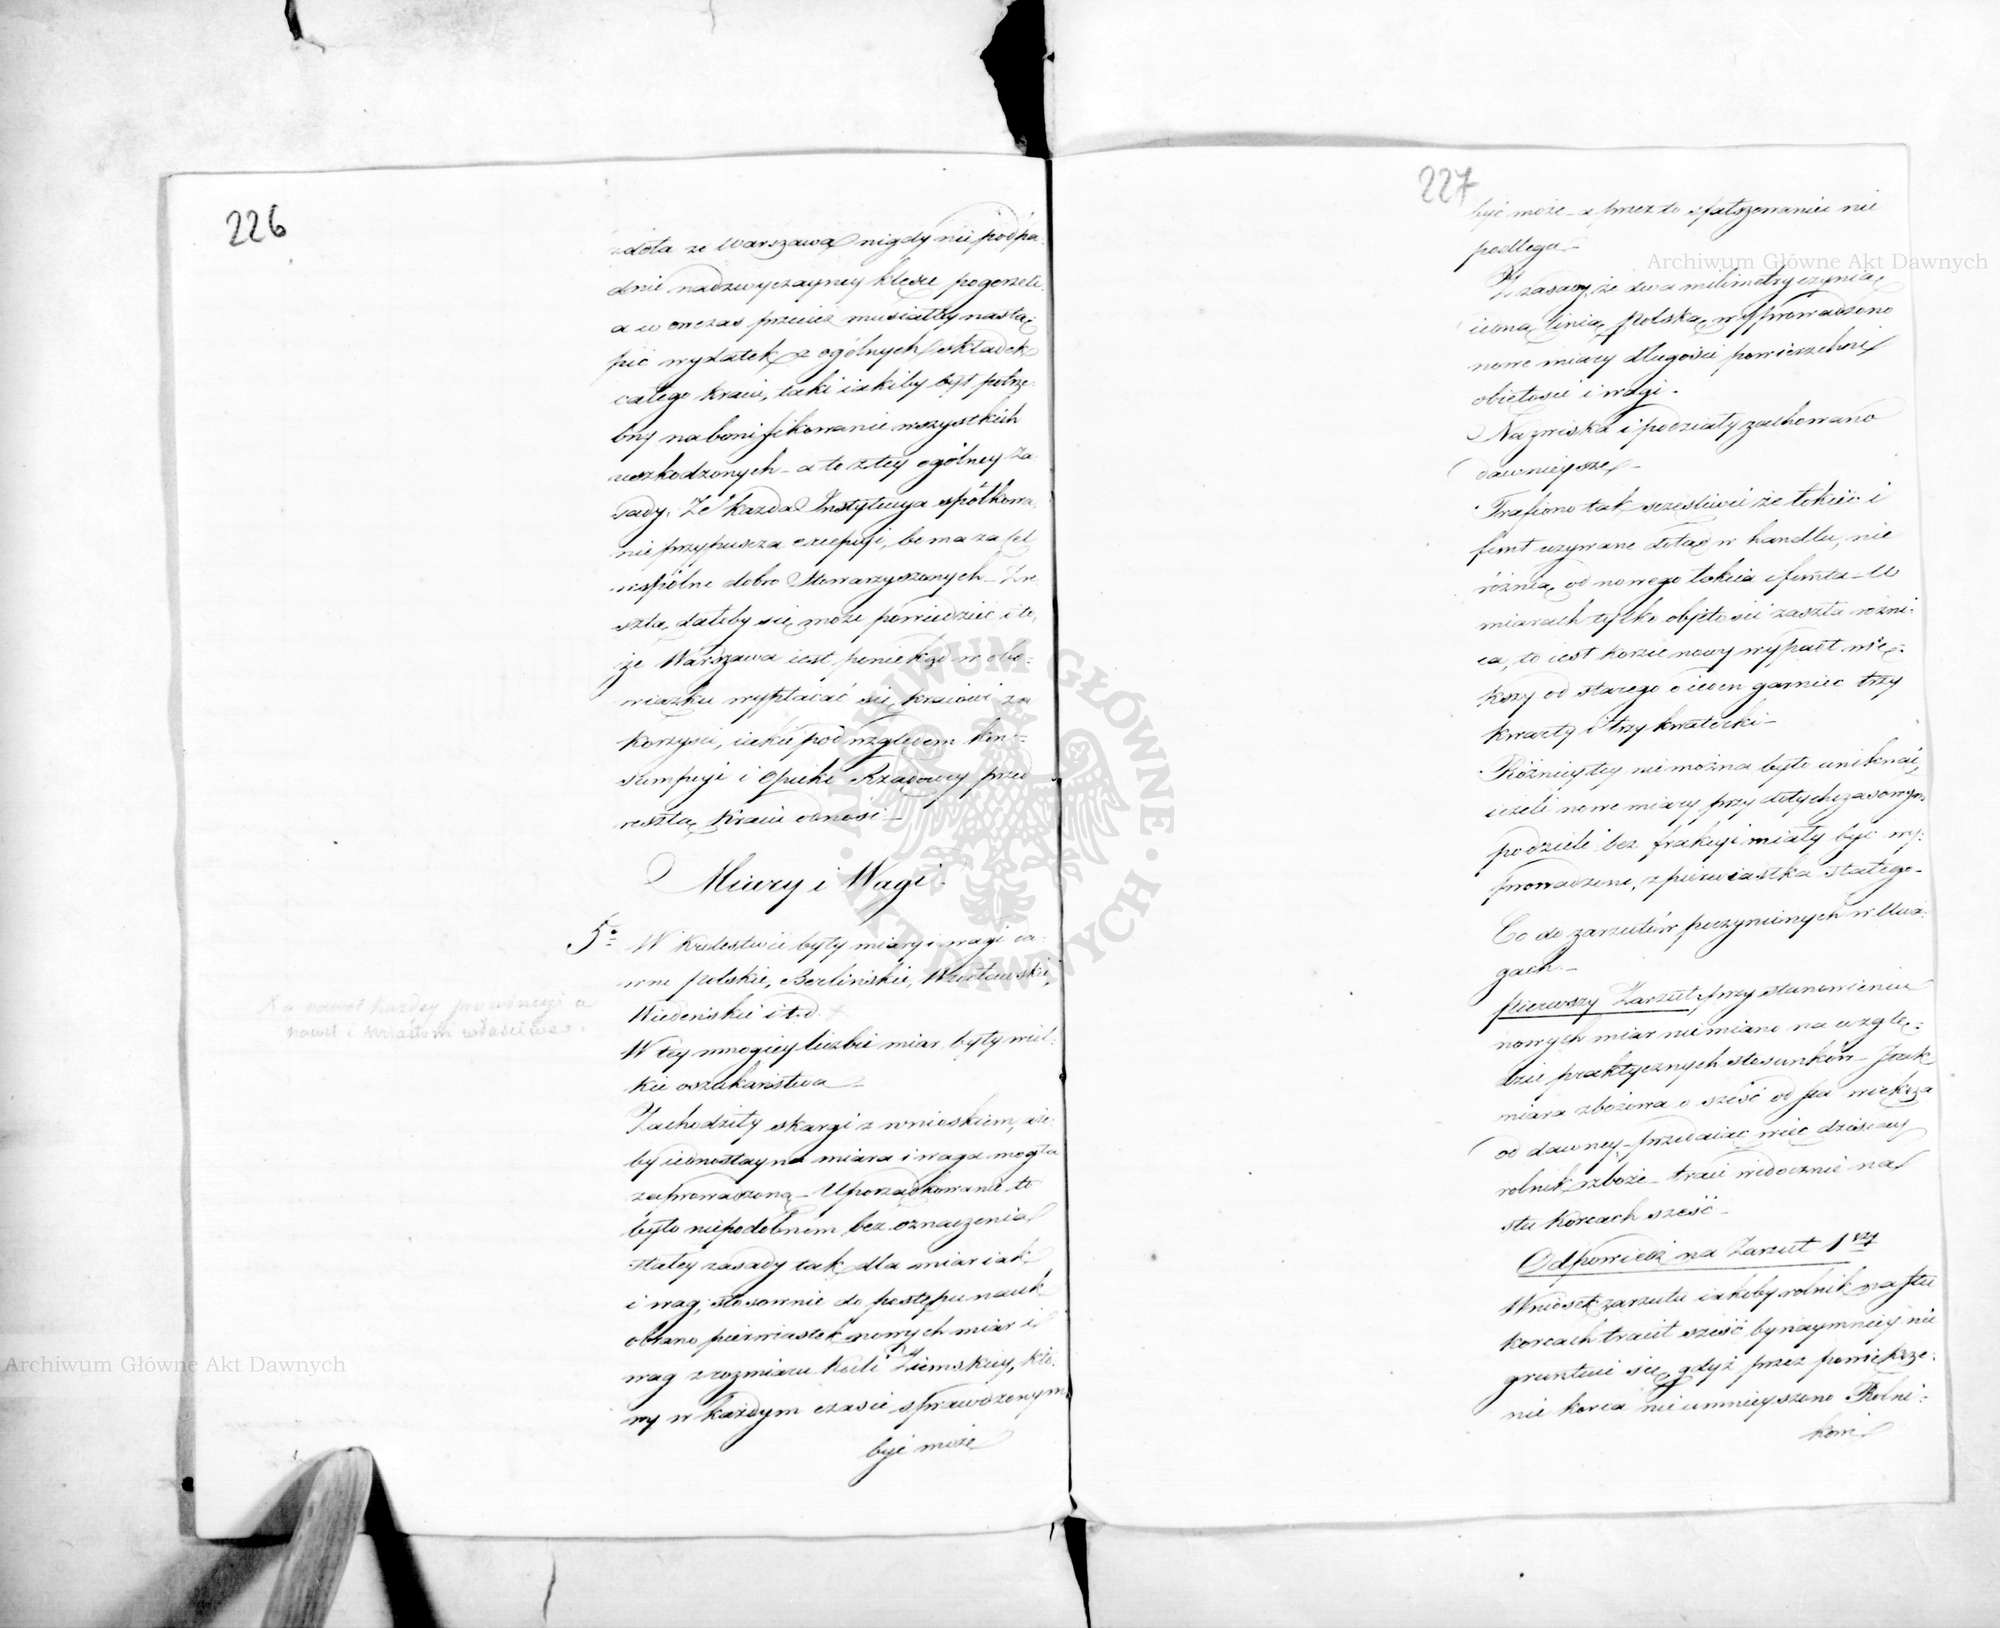 226
zdoła ze Warszawa nigdy nie podpa:
dnie nadzwyczayney klęsce pogorzeli,
a w onczas przecież musiałby nastą:
pić wydatek z ogólnych składek
całego kraiu, taki iakiby był potrze:
bny na bonifikowanie wszystkich
uszkodzonych – a to z tey ogólney za:
sady, Że każda Instytucya spółkowa
nie przypuszcza excepcyi, bo ma za cel
wspólne dobro Stowarzyszonych – Zre
sztą, dałoby się może powiedzieć i to,
że Warszawa iest poniekąd w obo:
wiązku wypłacać się kraiowi za
korzyści, iakie pod względem kon:
sumpcyi i Opieki Rządowey przed
resztą Kraiu odnosi –
Miary i Wagi.
5º W Królestwie były miary i wagi da:
wne polskie, Berlińskie, Wrocławskie,
Wiedeńskie i t.d.
Ka nawet każdey prowincyi a
nawet i miastom właściwe.
W tey mnogiey liczbie miar były wiel:
kie oszukaństwa –
Zachodziły skargi z wnioskiem, aże:
by iednostayna miara i waga mogła
zaprowadzoną – Uporządkowanie to
było niepodobnem bez oznaczenia
stałey zasady tak dla miar iak
i wag; stosownie do postępu nauk
obrano pierwiastek nowych miar i
wag z rozmiaru Kuli Ziemskiey, któ:
ry w każdym czasie sprawdzonym
być może
227
być może – a przez to sfałszowaniu nie
podlega –
Z zasady, że dwa milimetry czynią
iedną linię polską, wyprowadzono
nowe miary długości powierzchni
obiętości i wagi.
Nazwiska i podziały zachowano
dawnieysze –
Trafiono tak szczęśliwie że łokieć i
funt używane dotąd w handlu, nie
różnią od nowego łokcia i funta – W
miarach tylko objętości zaszła różni:
ca, to iest korzec nowy wypadł wię:
kszy od starego o ieden garniec trzy
kwarty i trzy kwaterki –
Różnicy tey nie można było uniknąć,
ieżeli nowe miary przy dotychczasowym
podziele bez frakcyi miały być wy:
prowadzone, z pierwiastka stałego –
Co do zarzutów poczynionych w Uwa:
gach –
Pierwszy Zarzut, przy stanowieniu
nowych miar nie miano na wzglę:
dzie praktycznych stosunków – Jak
miara zbożowa o sześć od sta większa
od dawney – przedaiąc więc dzisieyszy
rolnik zboże – traci widocznie na
stu korcach sześć –
Odpowiedź na Zarzut 1wszy
Wniosek zarzutu iakoby rolnik na stu
korcach tracił sześć bynaymniey nie
gruntuie się, gdyż przez powiększe:
nie korca nie umnieyszono Rolni:
kowi
Archiwum Główne Akt Dawnych
Archiwum Główne Akt Dawnych
ARCHIWUM GŁÓWNE · AKT DAWNYCH ·